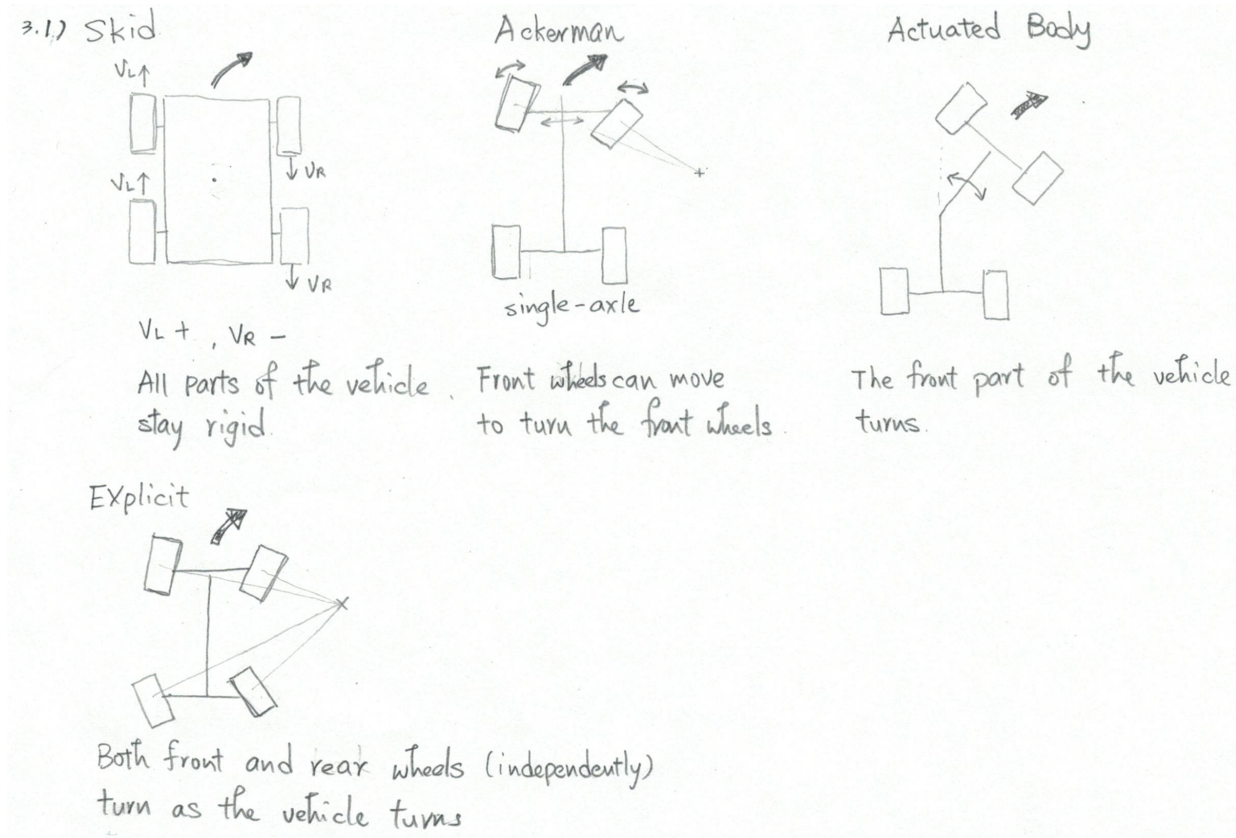 3.1.) Skid
Ackerman
Actuated Body
VL↑
VL↑
↓ VR
↓ VR
VL + , VR −
All parts of the vehicle
stay rigid.
single-axle
Front wheels can move
to turn the front wheels.
The front part of the vehicle
turns.
Explicit
Both front and rear wheels (independently)
turn as the vehicle turns